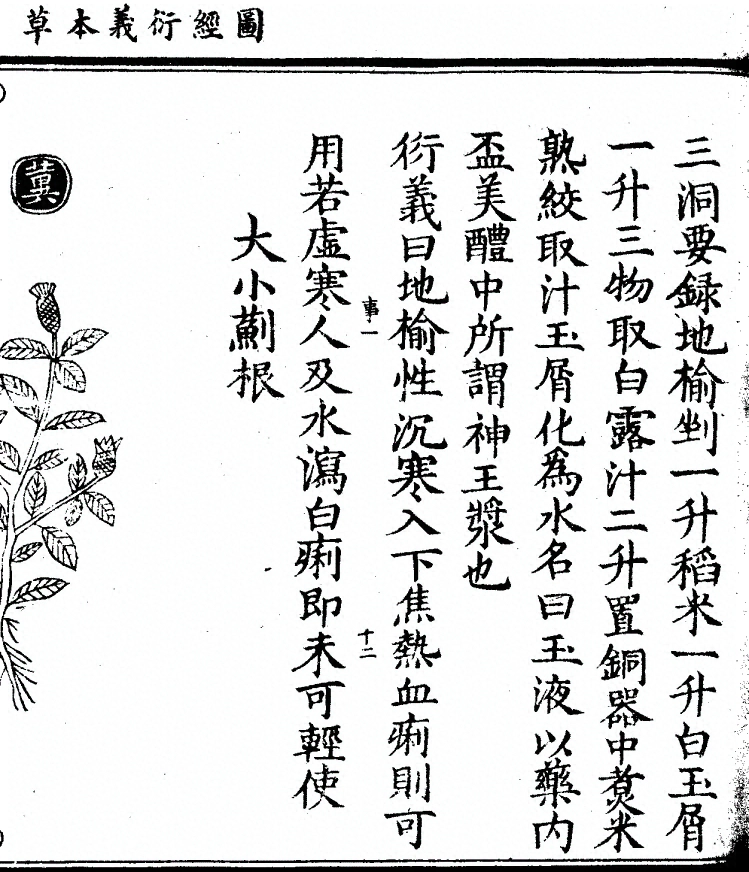 圖經衍義本草
三洞要録地榆剉一升稻米一升白玉屑
一升三物取白露汁二升置銅器中煑米
熟絞取汁玉屑化為水名曰玉液以藥内
盃美醴中所謂神王漿也
衍義曰地榆性沉寒入下焦熱血痢則可
事一
十二
用若虛寒人及水瀉白痢即未可輕使
大小薊根
冀